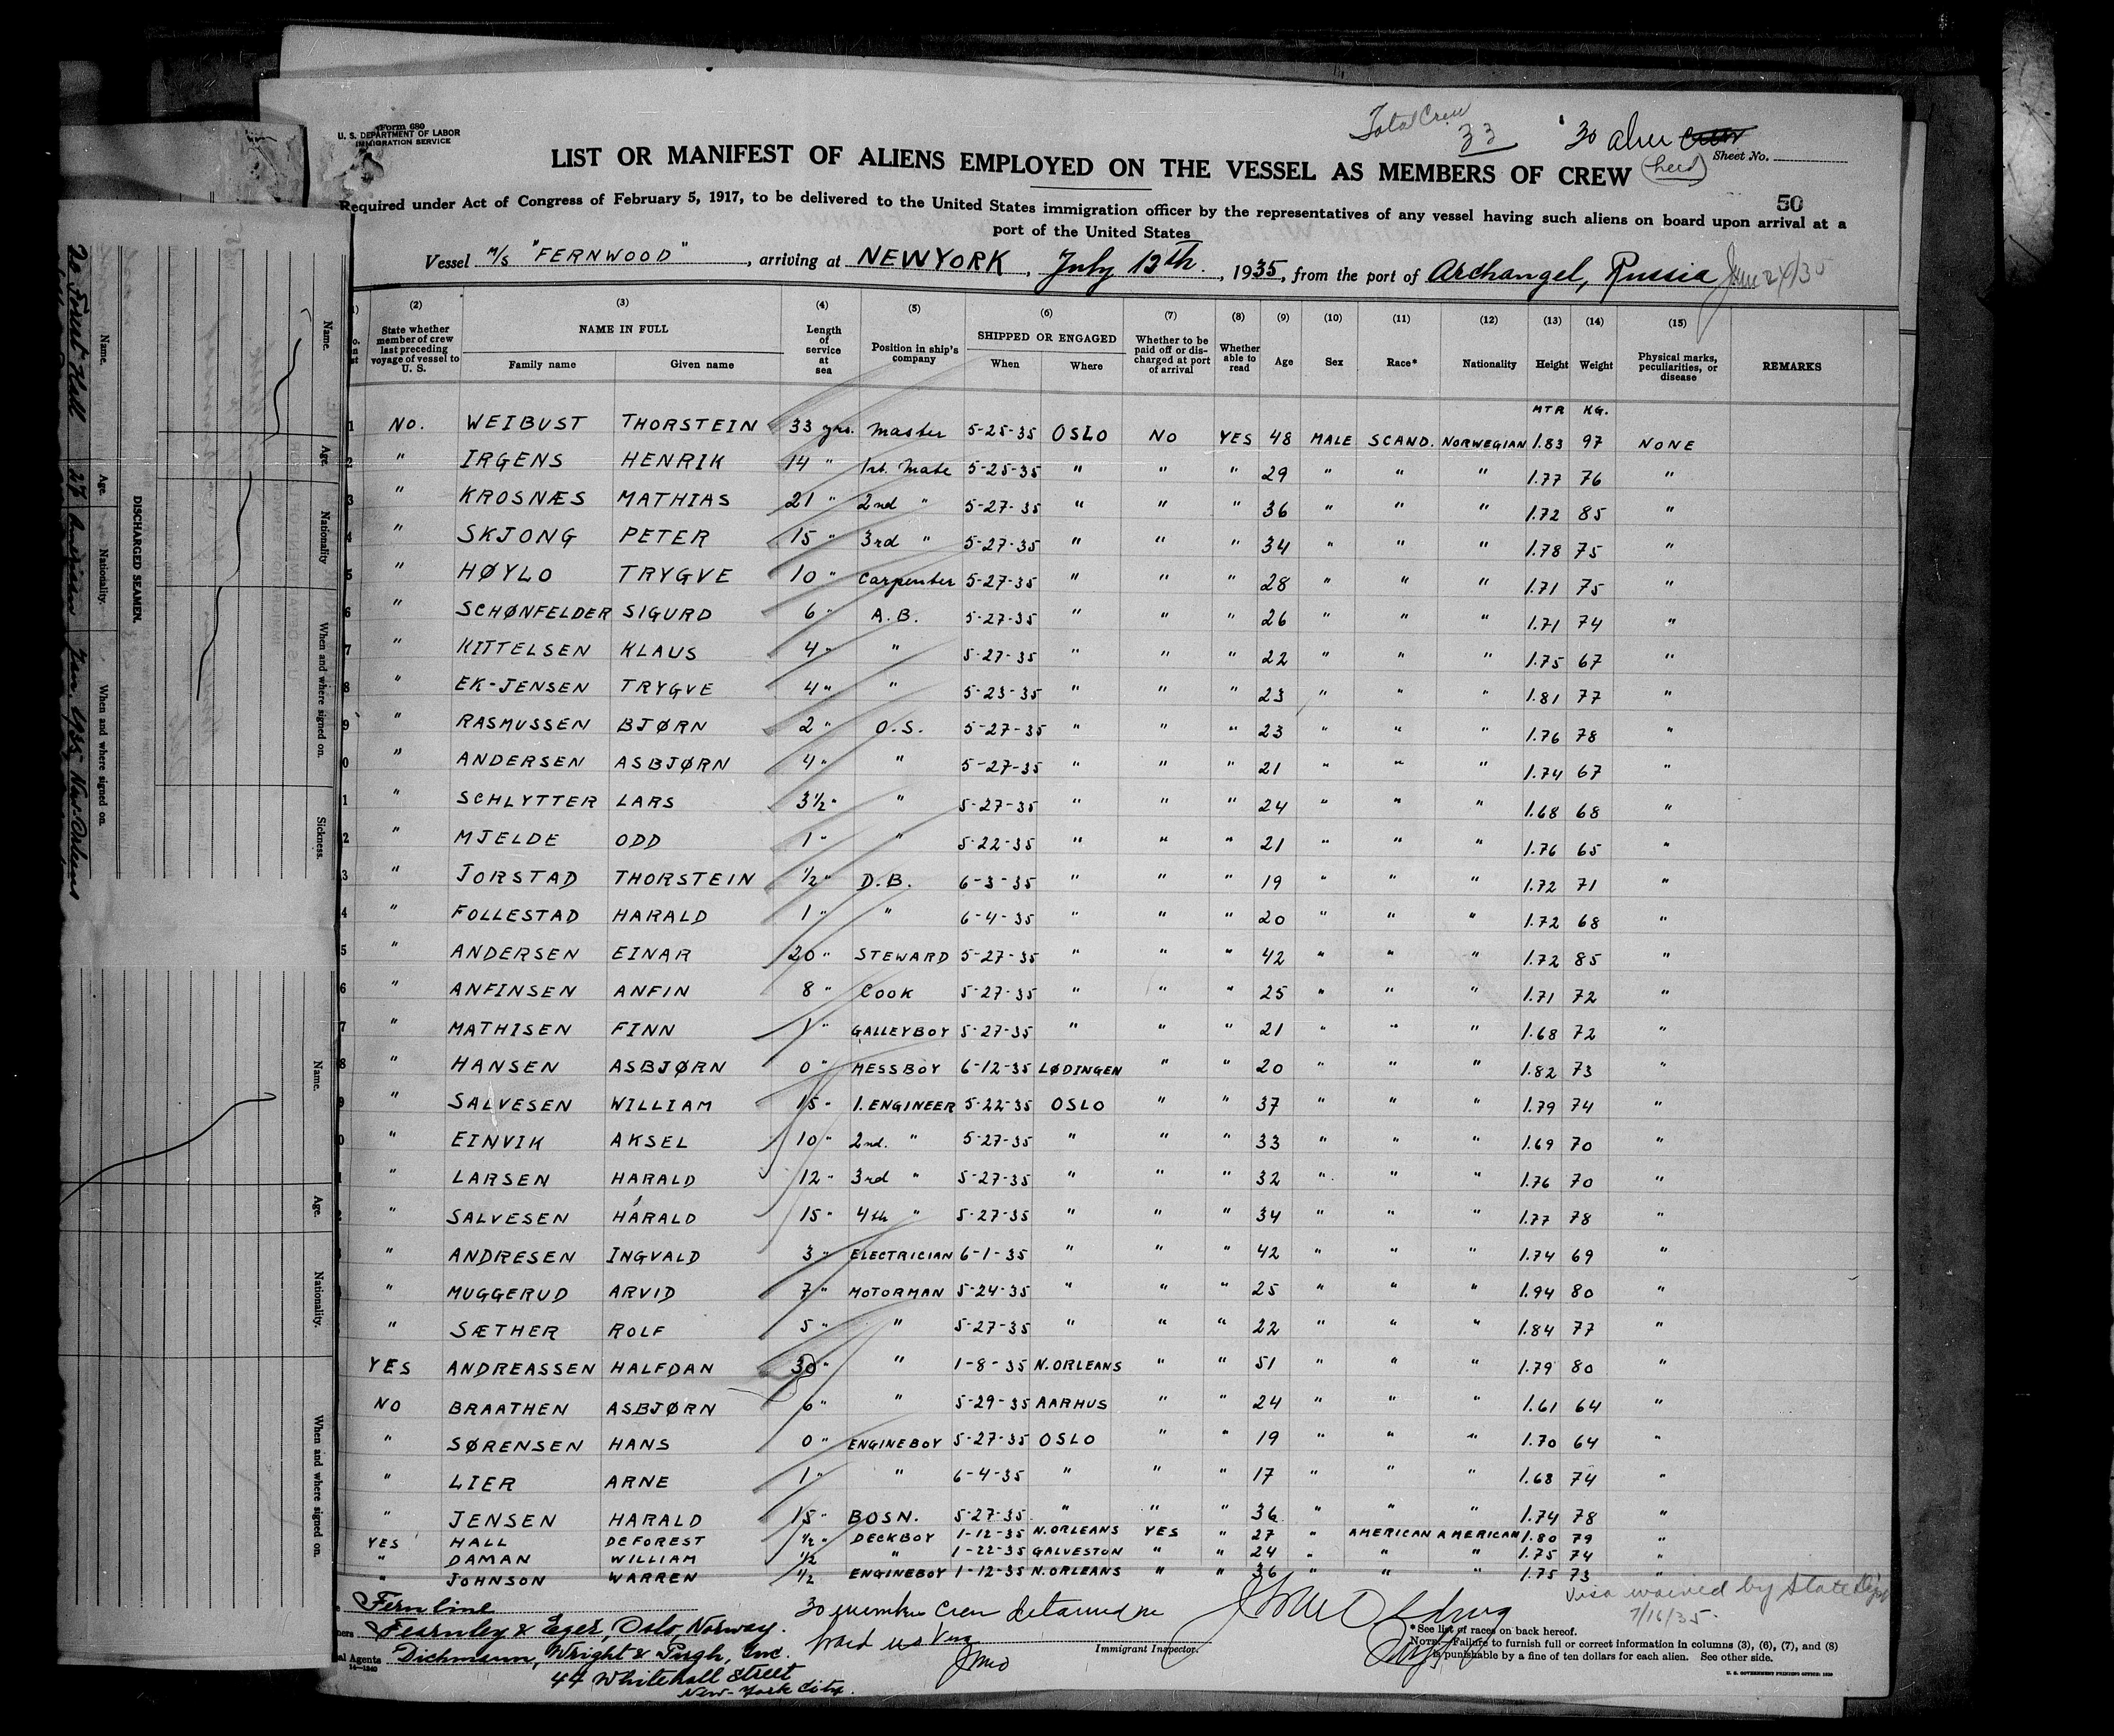 Form 680
U. S. DEPARTMENT OF LABOR
IMMIGRATION SERVICE
Total Crew
33
30 alien crew
Sheet No.
LIST OR MANIFEST OF ALIENS EMPLOYED ON THE VESSEL AS MEMBERS OF CREW
50
Required under Act of Congress of February 5, 1917, to be delivered to the United States immigration officer by the representatives of any vessel having such aliens on board upon arrival at a
port of the United States
Vessel M/S "FERNWOOD", arriving at NEW YORK, July 13th, 1935, from the port of Archangel, Russia June 24/35
(2) (3) (4) (5) (6) (7) (8) (9) (10) (11) (12) (13) (14) (15)
State whether member of crew last preceding voyage of vessel to U. S. NAME IN FULL Family name Given name Length of service at sea Position in ship's company SHIPPED OR ENGAGED When Where Whether to be paid off or discharged at port of arrival Whether able to read Age Sex Race* Nationality Height Weight Physical marks, peculiarities, or disease REMARKS
MTR KG.
1 NO. WEIBUST THORSTEIN 33 yrs. Master 5-25-35 OSLO NO YES 48 MALE SCAND. NORWEGIAN 1.83 97 NONE
2 " IRGENS HENRIK 14 " 1st. Mate 5-25-35 " " " 29 " " " 1.77 76 "
3 " KROSNÆS MATHIAS 21 " 2nd " 5-27-35 " " " 36 " " " 1.72 85 "
4 " SKJONG PETER 15 " 3rd " 5-27-35 " " " 34 " " " 1.78 75 "
5 " HØYLO TRYGVE 10 " Carpenter 5-27-35 " " " 28 " " " 1.71 75 "
6 " SCHØNFELDER SIGURD 6 " A.B. 5-27-35 " " " 26 " " " 1.71 74 "
7 " KITTELSEN KLAUS 4 " " 5-27-35 " " " 22 " " " 1.75 67 "
8 " EK-JENSEN TRYGVE 4 " " 5-23-35 " " " 23 " " " 1.81 77 "
9 " RASMUSSEN BJØRN 2 " O.S. 5-27-35 " " " 23 " " " 1.76 78 "
0 " ANDERSEN ASBJØRN 4 " " 5-27-35 " " " 21 " " " 1.74 67 "
1 " SCHLYTTER LARS 3½ " " 5-27-35 " " " 24 " " " 1.68 68 "
2 " MJELDE ODD 1 " " 5-22-35 " " " 21 " " " 1.76 65 "
3 " JORSTAD THORSTEIN ½ " D.B. 6-3-35 " " " 19 " " " 1.72 71 "
4 " FOLLESTAD HARALD 1 " " 6-4-35 " " " 20 " " " 1.72 68 "
5 " ANDERSEN EINAR 20 " STEWARD 5-27-35 " " " 42 " " " 1.72 85 "
6 " ANFINSEN ANFIN 8 " COOK 5-27-35 " " " 25 " " " 1.71 72 "
7 " MATHISEN FINN 1 " GALLEYBOY 5-27-35 " " " 21 " " " 1.68 72 "
8 " HANSEN ASBJØRN 0 " MESSBOY 6-12-35 LØDINGEN " " 20 " " " 1.82 73 "
9 " SALVESEN WILLIAM 15 " 1. ENGINEER 5-22-35 OSLO " " 37 " " " 1.79 74 "
0 " EINVIK AKSEL 10 " 2nd. " 5-27-35 " " " 33 " " " 1.69 70 "
1 " LARSEN HARALD 12 " 3rd " 5-27-35 " " " 32 " " " 1.76 70 "
" SALVESEN HARALD 15 " 4th " 5-27-35 " " " 34 " " " 1.77 78 "
" ANDRESEN INGVALD 3 " ELECTRICIAN 6-1-35 " " " 42 " " " 1.74 69 "
" MUGGERUD ARVID 7 " MOTORMAN 5-24-35 " " " 25 " " " 1.94 80 "
" SÆTHER ROLF 5 " " 5-27-35 " " " 22 " " " 1.84 77 "
YES ANDREASSEN HALFDAN 30 " " 1-8-35 N.ORLEANS " " 51 " " " 1.79 80 "
NO BRAATHEN ASBJØRN 6 " " 5-29-35 AARHUS " " 24 " " " 1.61 64 "
" SØRENSEN HANS 0 " ENGINEBOY 5-27-35 OSLO " " 19 " " " 1.70 64 "
" LIER ARNE 1 " " 6-4-35 " " " 17 " " " 1.68 74 "
" JENSEN HARALD 15 " BOSN. 5-27-35 " " " 36 " " " 1.74 78 "
YES HALL DEFOREST ½ " DECKBOY 1-12-35 N.ORLEANS YES " 27 " AMERICAN AMERICAN 1.80 79 "
" DAMAN WILLIAM ½ " 1-22-35 GALVESTON " " 24 " " " 1.75 74 "
" JOHNSON WARREN ½ ENGINEBOY 1-12-35 N.ORLEANS " " 36 " " " 1.75 73 "
Visa waived by State Dept
7/16/35
Fern line
Fearnley & Eger, Oslo, Norway.
Dichmann, Wright & Pugh, Inc.
44 Whitehall Street
New-York City.
14-1240
30 member crew detained on
board no visa
Immigrant Inspector.
*See list of races on back hereof.
NOTE.—Failure to furnish full or correct information in columns (3), (6), (7), and (8)
is punishable by a fine of ten dollars for each alien. See other side.
U. S. GOVERNMENT PRINTING OFFICE
Name. Age. Nationality When and where signed on. Sickness.
DISCHARGED SEAMEN.
Name. Age. Nationality. When and where signed on.
De Forest Hall 27 American Jan. 1935 New Orleans
Name. Age. Nationality. When and where signed on.